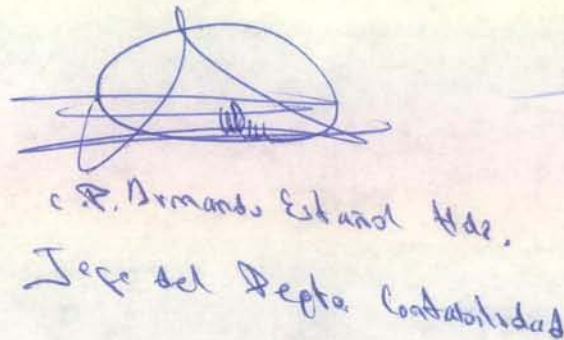 C.P. Armando Estañol Hdz.
Jefe del Depto. Contabilidad